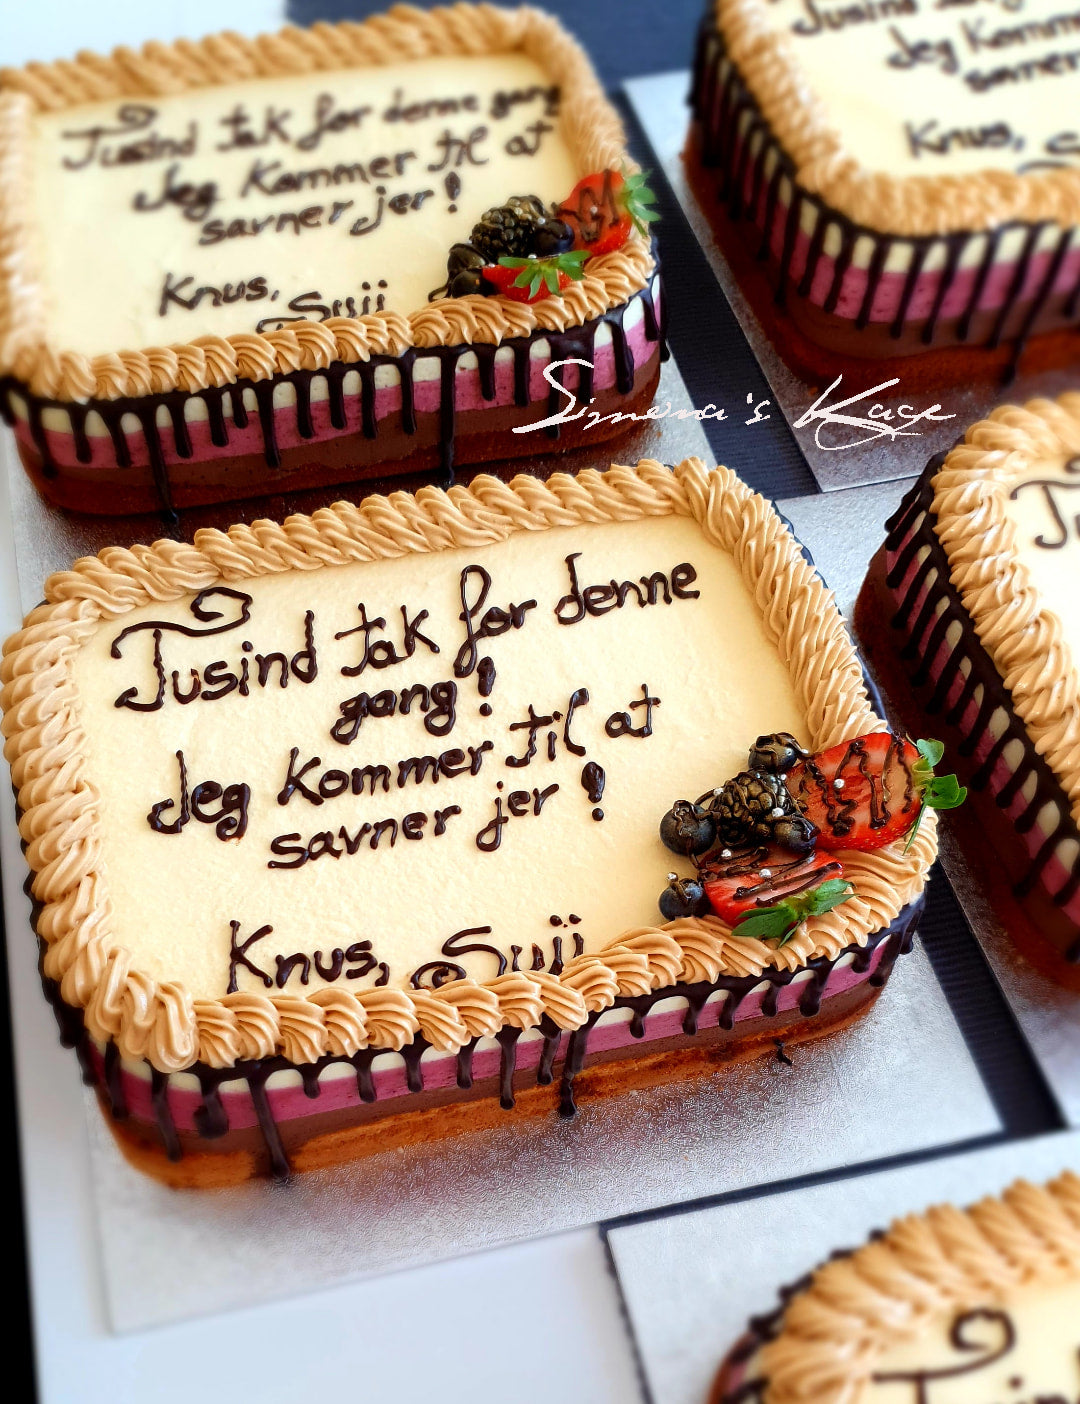 Tusind tak for denne gang
Jeg kommer til at
savner jer!
Knus,
Suii
Tusind
Jeg Komm
savner
Knus,
Simona's Kage
Tusind tak for denne
gang!
Jeg kommer til at
savner jer!
Knus, Suii